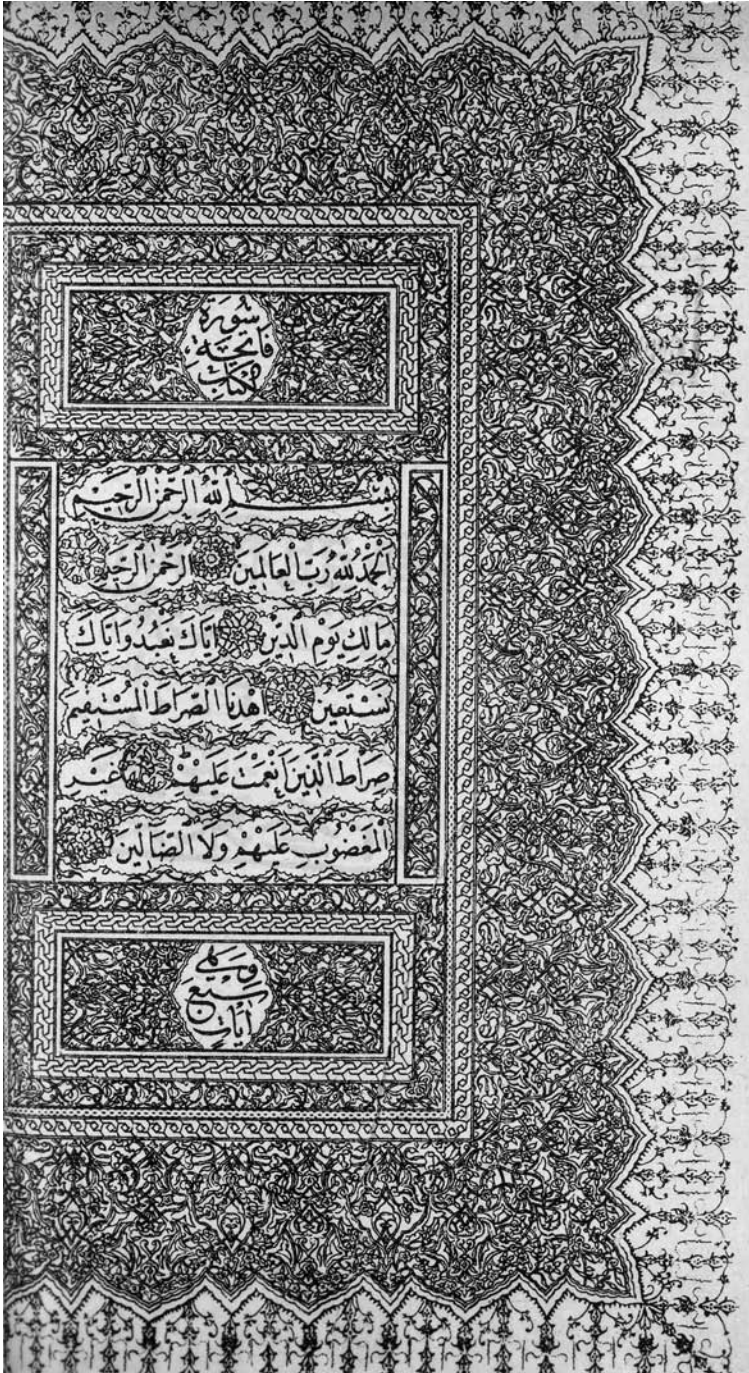 سُورَة
فَاتِحَة
الْكِتَاب
بِسْمِ اللّٰهِ الرَّحْمٰنِ الرَّحِيمِ
اَلْحَمْدُ لِلّٰهِ رَبِّ الْعَالَمِينَ الرَّحْمٰنِ الرَّحِيمِ
مَالِكِ يَوْمِ الدِّينِ اِيَّاكَ نَعْبُدُ وَاِيَّاكَ
نَسْتَعِينُ اِهْدِنَا الصِّرَاطَ الْمُسْتَقِيمَ
صِرَاطَ الَّذِينَ اَنْعَمْتَ عَلَيْهِمْ غَيْرِ
الْمَغْضُوبِ عَلَيْهِمْ وَلَا الضَّالِّينَ
وَهِيَ
سَبْعُ
اٰيَاتٍ